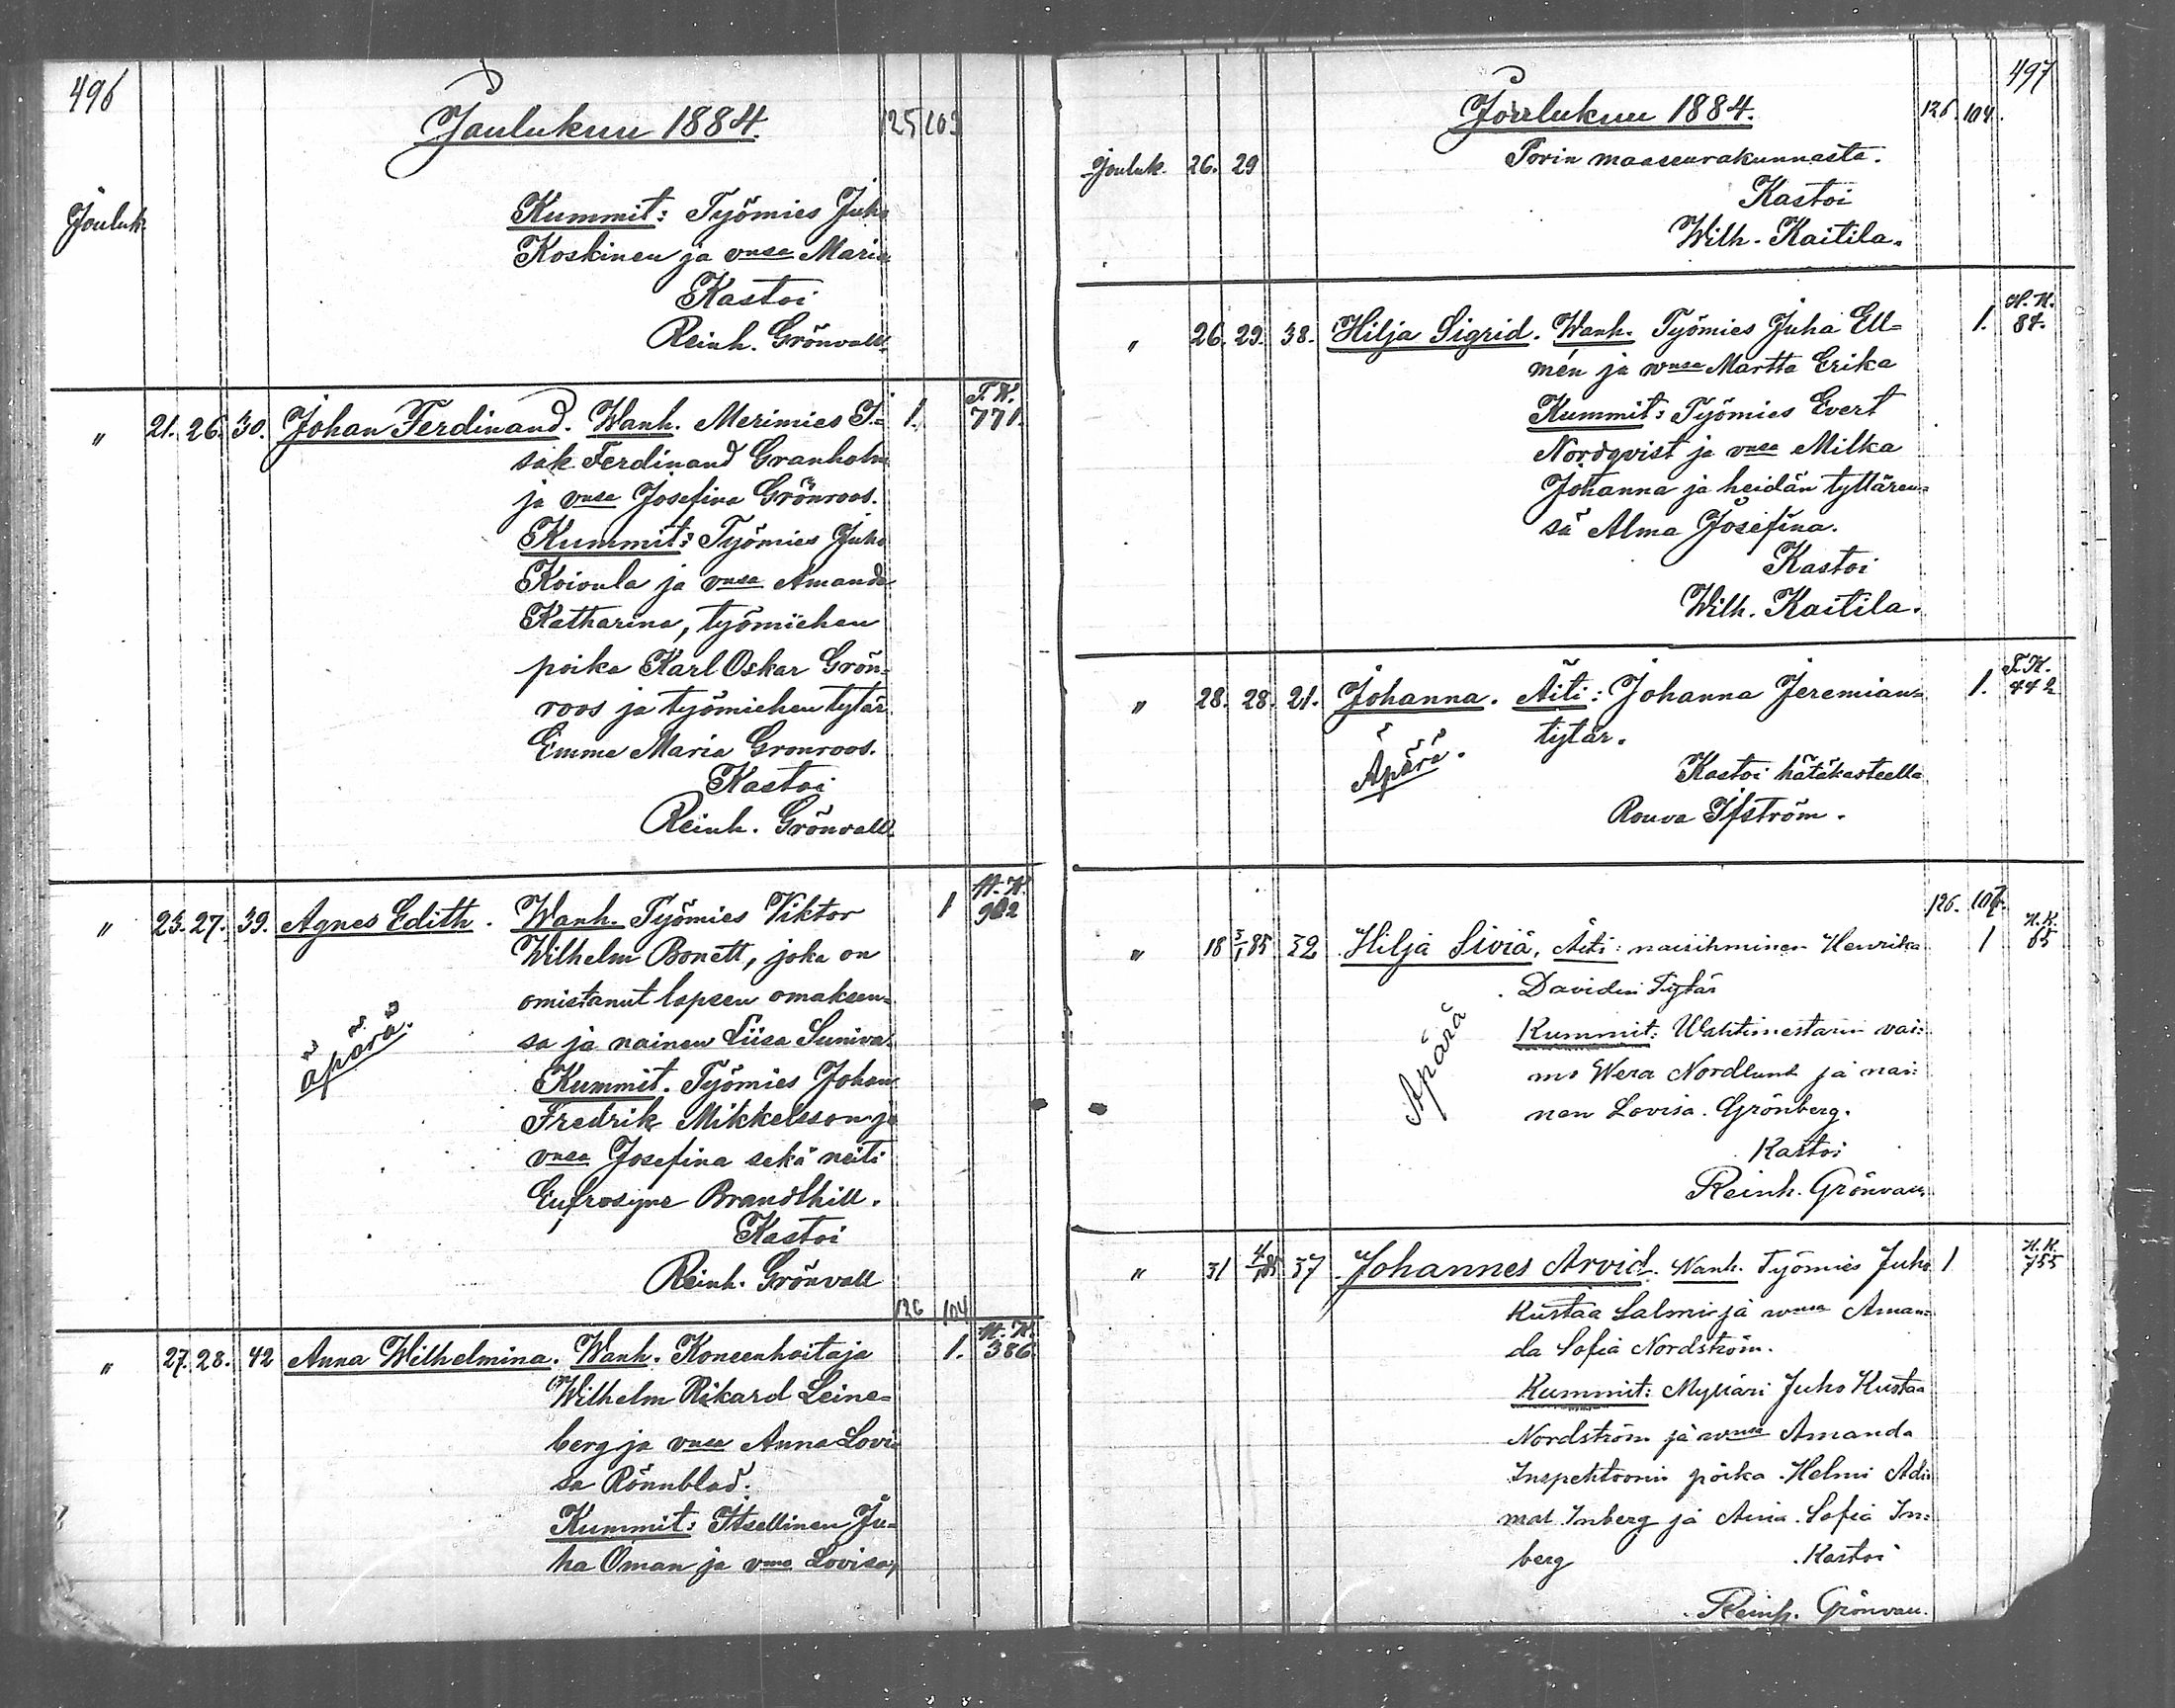 496
Joulukuu 1884.
125 103
Jouluk.
Kummit: Työmies Juho
Koskinen ja vnsa Maria
Kastoi
Reinh. Grönvall.
" 21. 26. 30. Johan Ferdinand. Wanh. Merimies I= 1. T.K. 771.
sak Ferdinand Granholm
ja vnsa Josefina Grönroos.
Kummit: Työmies Juho
Koivula ja vnsa Amanda
Katharina, työmiehen
poika Karl Oskar Grön=
roos ja työmiehen tytär
Emma Maria Gronroos.
Kastoi
Reinh. Grönvall.
" 23. 27. 39. Agnes Edith. Wanh. Työmies Viktor 1 902
Wilhelm Bonett, joka on
omistanut lapsen omaksen=
sa ja nainen Liisa Suniva.
äpärä.
Kummit. Työmies Johan
Fredrik Mikkelsson ja
vnsa Josefina sekä neiti
Eufrosyne Brandthill.
Kastoi
Reinh. Grönvall
126 104
" 27. 28. 42 Anna Wilhelmina. Wanh. Koneenhoitaja 1. 386.
Wilhelm Rikard Leine=
berg ja vnsa Anna Lovi
sa Rönnblad.
Kummit: Itsellinen Ju=
ha Öman ja vnsa Lovisa,
497
Joulukuu 1884.
126. 104.
Jouluk. 26. 29 Porin maaseurakunnasta.
Kastoi
Wilh. Kaitila.
" 26. 29. 38. Hilja Sigrid. Wanh. Työmies Juha Ell= 1. 84.
mén ja wnsa Martta Erika
Kummit: Työmies Evert
Nordqvist ja vnsa Milka
Johanna ja heidän tyttären=
sä Alma Josefina.
Kastoi
Wilh. Kaitila.
" 28. 28. 21. Johanna. Äiti: Johanna Jeremian= 1. T.K. 442
tytär.
Äpärä.
Kastoi hätäkasteella
Rouva Ifström.
126. 107.
" 18 3/1 85 32 Hilja Siviä. Äiti: naisihminen Henrika 1 H.K. 65
Davidin Tytär
Kummit: Wahtimestarin vai=
mo Wera Nordlund ja nai=
nen Lovisa Grönberg.
Äpärä
Kastoi
Reinh. Grönvall.
" 31 4/1 85 37 Johannes Arvid. Wanh. Työmies Juho 1 H.K. 755
Kustaa Salmi ja wnsa Aman=
da Sofia Nordström.
Kummit: Mylläri Juho Kustaa
Nordström ja wnsa Amanda
Inspehtoorin poika Helmi
Inberg ja Sofia In=
berg Kastoi
Reinh. Grönvall.